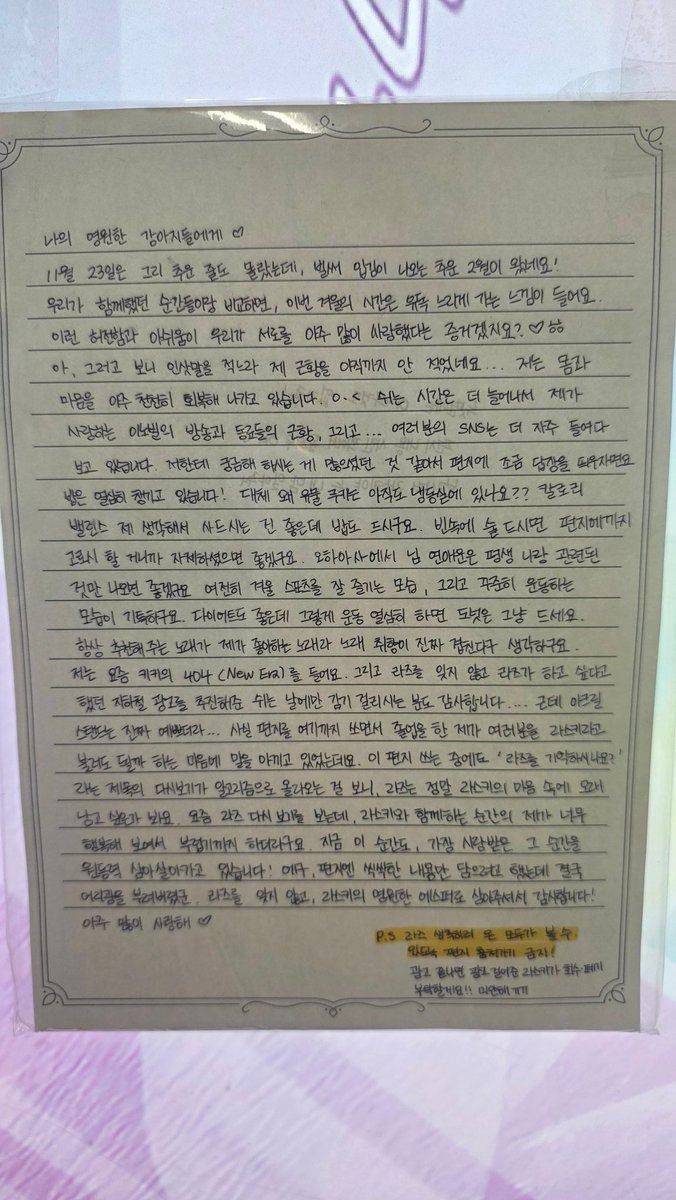 나의 영원한 강아지들에게 ♡
11월 23일은 그리 추운 줄도 몰랐는데, 벌써 입김이 나오는 추운 2월이 왔네요!
우리가 함께했던 순간들이랑 비교하면, 이번 겨울의 시간은 유독 느리게 가는 느낌이 들어요.
이런 허전함과 아쉬움이 우리가 서로를 아주 많이 사랑했다는 증거겠지요? ♡ㅎㅎ
아, 그러고 보니 인삿말을 적느라 제 근황을 아직까지 안 적었네요... 저는 몸과
마음을 아주 천천히 회복해 나가고 있습니다. ㅇ.< 쉬는 시간은 더 늘어나서 제가
사랑하는 이노빌의 방송과 동료들의 근황, 그리고... 여러분의 SNS는 더 자주 들여다
보고 있습니다. 저한테 궁금해 하시는 게 많으셨던 것 같아서 편지에 조금 답장을 띄우자면요
밥은 열심히 챙기고 있습니다! 대체 왜 유물 쿠키는 아직도 냉동실에 있나요?? 칼로리
밸런스 제 생각해서 사드시는 건 좋은데 밥도 드시구요. 빈속에 술 드시면 편지에까지
고로시 할 거니까 자제하셨으면 좋겠구요. 오하아사에서 님 연애운은 평생 나랑 관련된
것만 나오면 좋겠구요 여전히 겨울 스포츠를 잘 즐기는 모습, 그리고 꾸준히 운동하는
모습이 기특하구요. 다이어트도 좋은데 그렇게 운동 열심히 하면 도넛은 그냥 드세요.
항상 추천해 주는 노래가 제가 좋아하는 노래라 노래 취향이 진짜 겹친다구 생각하구요.
저는 요즘 키키의 404 (New Era)를 들어요. 그리고 라즈를 잊지 않고 라즈가 하고 싶다고
했던 지하철 광고를 추진해준 쉬는 날에만 감기 걸리시는 분도 감사합니다.... 근데 아크릴
스탠드는 진짜 예쁘더라... 사실 편지를 여기까지 쓰면서 졸업을 한 제가 여러분을 라스키라고
불러도 될까 하는 마음에 말을 아끼고 있었는데요. 이 편지 쓰는 중에도 '라즈를 기억하시나요?'
라는 제목의 다시보기가 알고리즘으로 올라오는 걸 보니, 라즈는 정말 라스키의 마음 속에 오래
남고 싶은가 봐요. 요즘 라즈 다시 보기를 보는데, 라스키와 함께하는 순간의 제가 너무
행복해 보여서 부럽기까지 하더라구요. 지금 이 순간도, 가장 사랑받은 그 순간을
원동력 삼아 살아가고 있습니다! 에구, 편지엔 씩씩한 내용만 담으려고 했는데 결국
어리광을 부려버렸군. 라즈를 잊지 않고, 라스키의 영원한 에스퍼로 살아주셔서 감사합니다!
아주 많이 사랑해 ♡
P.S 라즈 생축하러 온 모두가 볼 수
있도록 편지 훔쳐가기 금지!
광고 끝나면 광고 걸어준 라스키가 회수·폐기
부탁할게요!! 미안해 ㄱㄱ